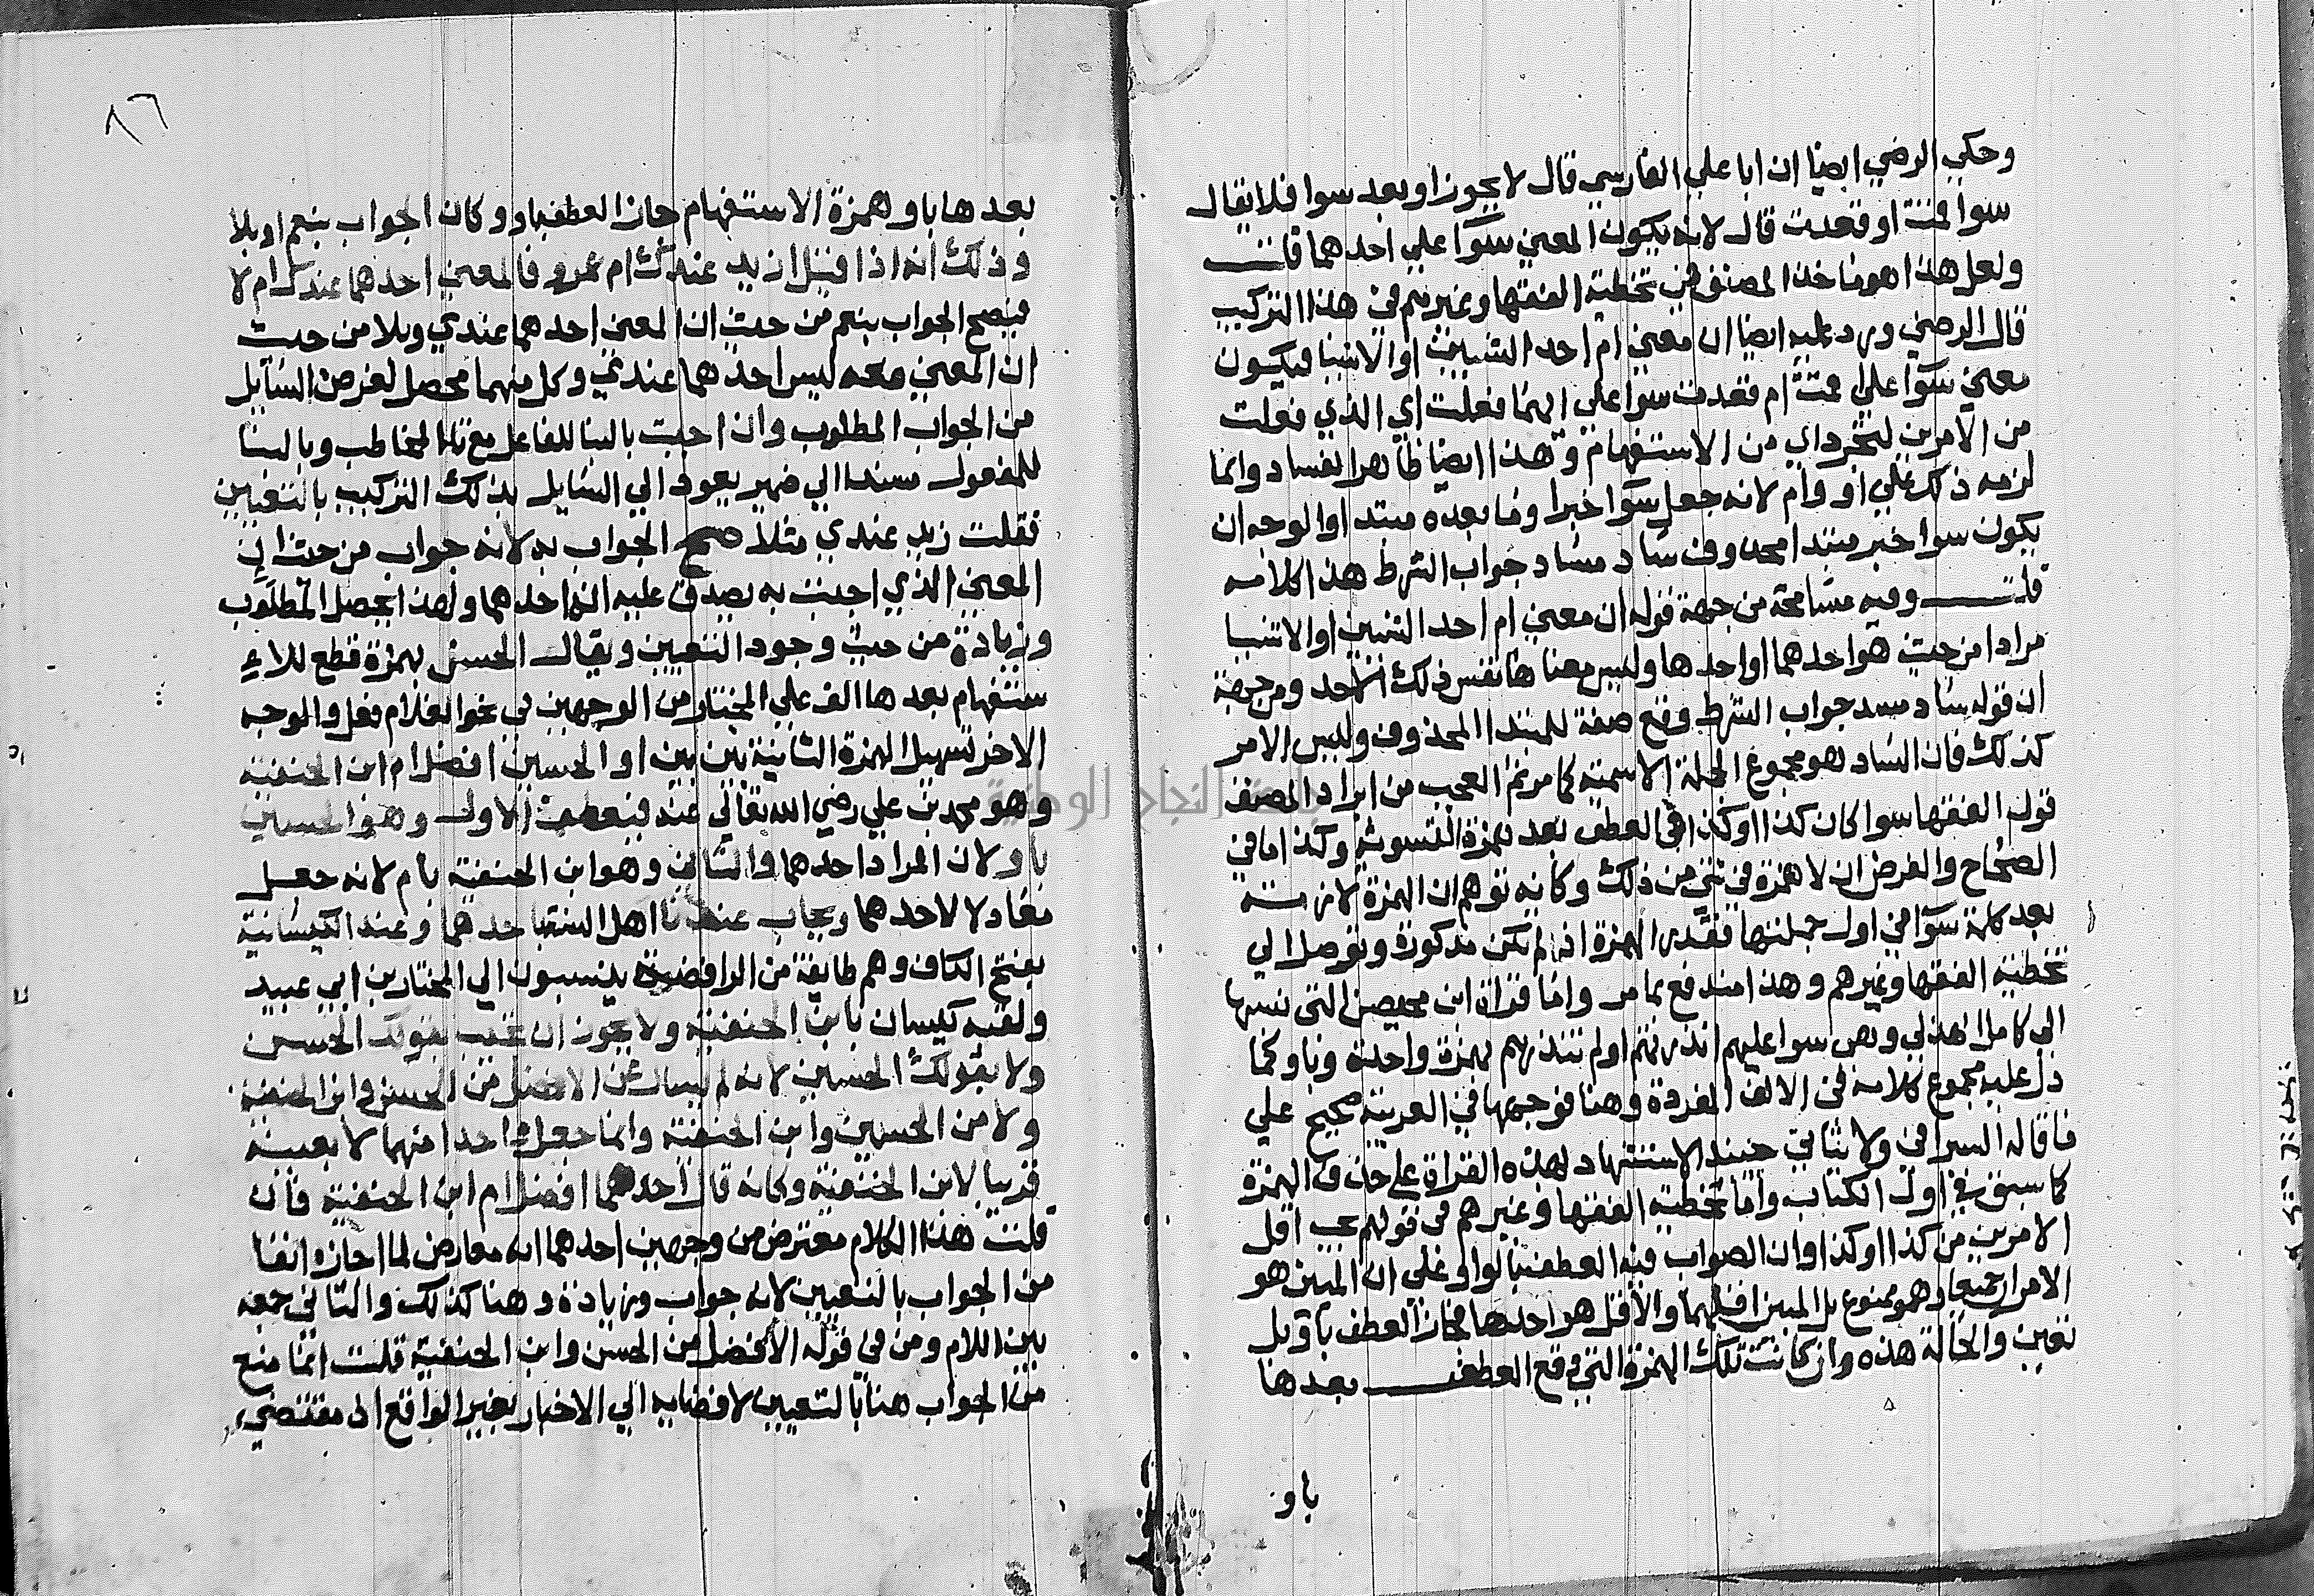 وحكي الرضي ايضا ان ابا علي الفارسي قال لا يجوز او بعد سوا فلا يقال
سوا قمت او قعدت قال لانه يكون المعني سوآ علي احدهما قلت
ولعل هذا هو ماخذ المصنف في تخطية الفقها وغيرهم في هذا التركيب
قال الرضي ويرد عليه ايضا ان معني ام احد الشيئين او الاشيا فيكون
معني سوآ علي اقمت ام قعدت سوا علي ايهما فعلت اي الذي فعلت
من الامرين لتجرد اي من الاستفهام وهذا ايضا ظاهر الفساد وانما
لزمه ذلك علي او وام لانه جعل سوآ خبرا وما بعده مبتدا والوجه ان
يكون سوا خبر مبتدا محذوف ساد مساد جواب الشرط هذا كلامه
قلت وفيه مسامحة من جهة قوله ان معني ام احد الشيئين او الاشيا
مرادا من حيث هو احدهما او احدها وليس معناها نفس ذلك الاحد ومن جهة
ان قوله ساد مسد جواب الشرط وقع صفة للمبتدا المحذوف وليس الامر
كذلك فان الساد هو مجموع الجملة الاسمية كما مر ثم العجب من ايراد المصنف
قول الفقها سوا كان كذا او كذا في العطف بعد همزة التسوية وكذا ما في
الصحاح والفرض ان لا همزة في شي من ذلك وكانه توهم ان الهمزة لازمة
بعد كلمة سوآ في اول جملتها فقدر الهمزة اذ لم تكن مذكورة وتوصل الي
تخطية الفقها وغيرهم وهذا مندفع بما مر واما قراة ابن محيصن التي نسبها
الي كامل الهذلي وهي سوا عليهم انذرتهم او لم تنذرهم بهمزة واحدة وباو كما
دل عليه مجموع كلامه في الالف المفردة وهنا فوجهها في العربية صحيح علي
ما قاله السيرافي ولا ينافي حينيذ الاستشهاد لهذه القراة علي حذف الهمزة
كما سبق في اول الكتاب واما تخطية الفقها وغيرهم في قولهم يجب اقل
الامرين من كذا او كذا وان الصواب فيه العطف بالواو فعلي ان المبين هو
الامران جميعا وهو ممنوع بل المبين اقلهما والاقل هو احدهما فجاز العطف باو بل
تعين والحالة هذه وان كانت تلك الهمزة التي وقع العطف بعدها
باو
٨٦
بعدها باو همزة الاستفهام جاز العطف باو وكان الجواب بنعم او بلا
وذلك انه اذا قيل ازيد عندك ام عمرو فالمعني احدهما عندك ام لا
فيصح الجواب بنعم من حيث ان المعني احدهما عندي وبلا من حيث
ان المعني معه ليس احدهما عندي وكل منهما محصل لغرض السايل
من الجواب المطلوب وان اجبت بالبنا للفاعل مع تا المخاطب وبالبنا
للمفعول مسندا الي ضمير يعود الي السايل بذلك التركيب بالتعيين
فقلت زيد عندي مثلا صح الجواب به لانه جواب من حيث ان
المعني الذي اجبت به يصدق عليه انه احدهما ولهذا يحصل المطلوب
وزيادة من حيث وجود التعيين ويقال الحسن بهمزة قطع للا
ستفهام بعدها الف علي المختار من الوجهين في نحو الغلام فعل والوجه
الاخر تسهيل الهمزة الثانية بين بين او الحسين افضل ام ابن الحنفية
وهو محمد بن علي رضي الله تعالي عنه فيعطف الاول وهو الحسين
باو لان المراد احدهما والثاني وهو ابن الحنفية بام لانه جعل
معادلا لاحدهما ويجاب عندنا اهل السنة باحدهما وعند الكيسانية
بفتح الكاف وهم طايفة من الرافضة ينسبون الي المختار بن ابي عبيد
ولقبه كيسان بابن الحنفية ولا يجوز ان تجيب بقولك الحسن
ولا بقولك الحسين لانه لم يسال عن الافضل من الحسن وابن الحنفية
ولا من الحسين وابن الحنفية وانما جعل واحدا منهما لا بعينه
قرينا لابن الحنفية وكانه قال احدهما افضل ام ابن الحنفية فان
قلت هذا الكلام معترض من وجهين احدهما انه معارض لما اجازه انفا
من الجواب بالتعيين لانه جواب وزيادة وهنا كذلك والثاني جمعه
بين اللام ومن في قوله الافضل من الحسن وابن الحنفية قلت انما منع
من الجواب هنا بالتعيين لافضايه الي الاخبار بغير الواقع اذ مقتضي